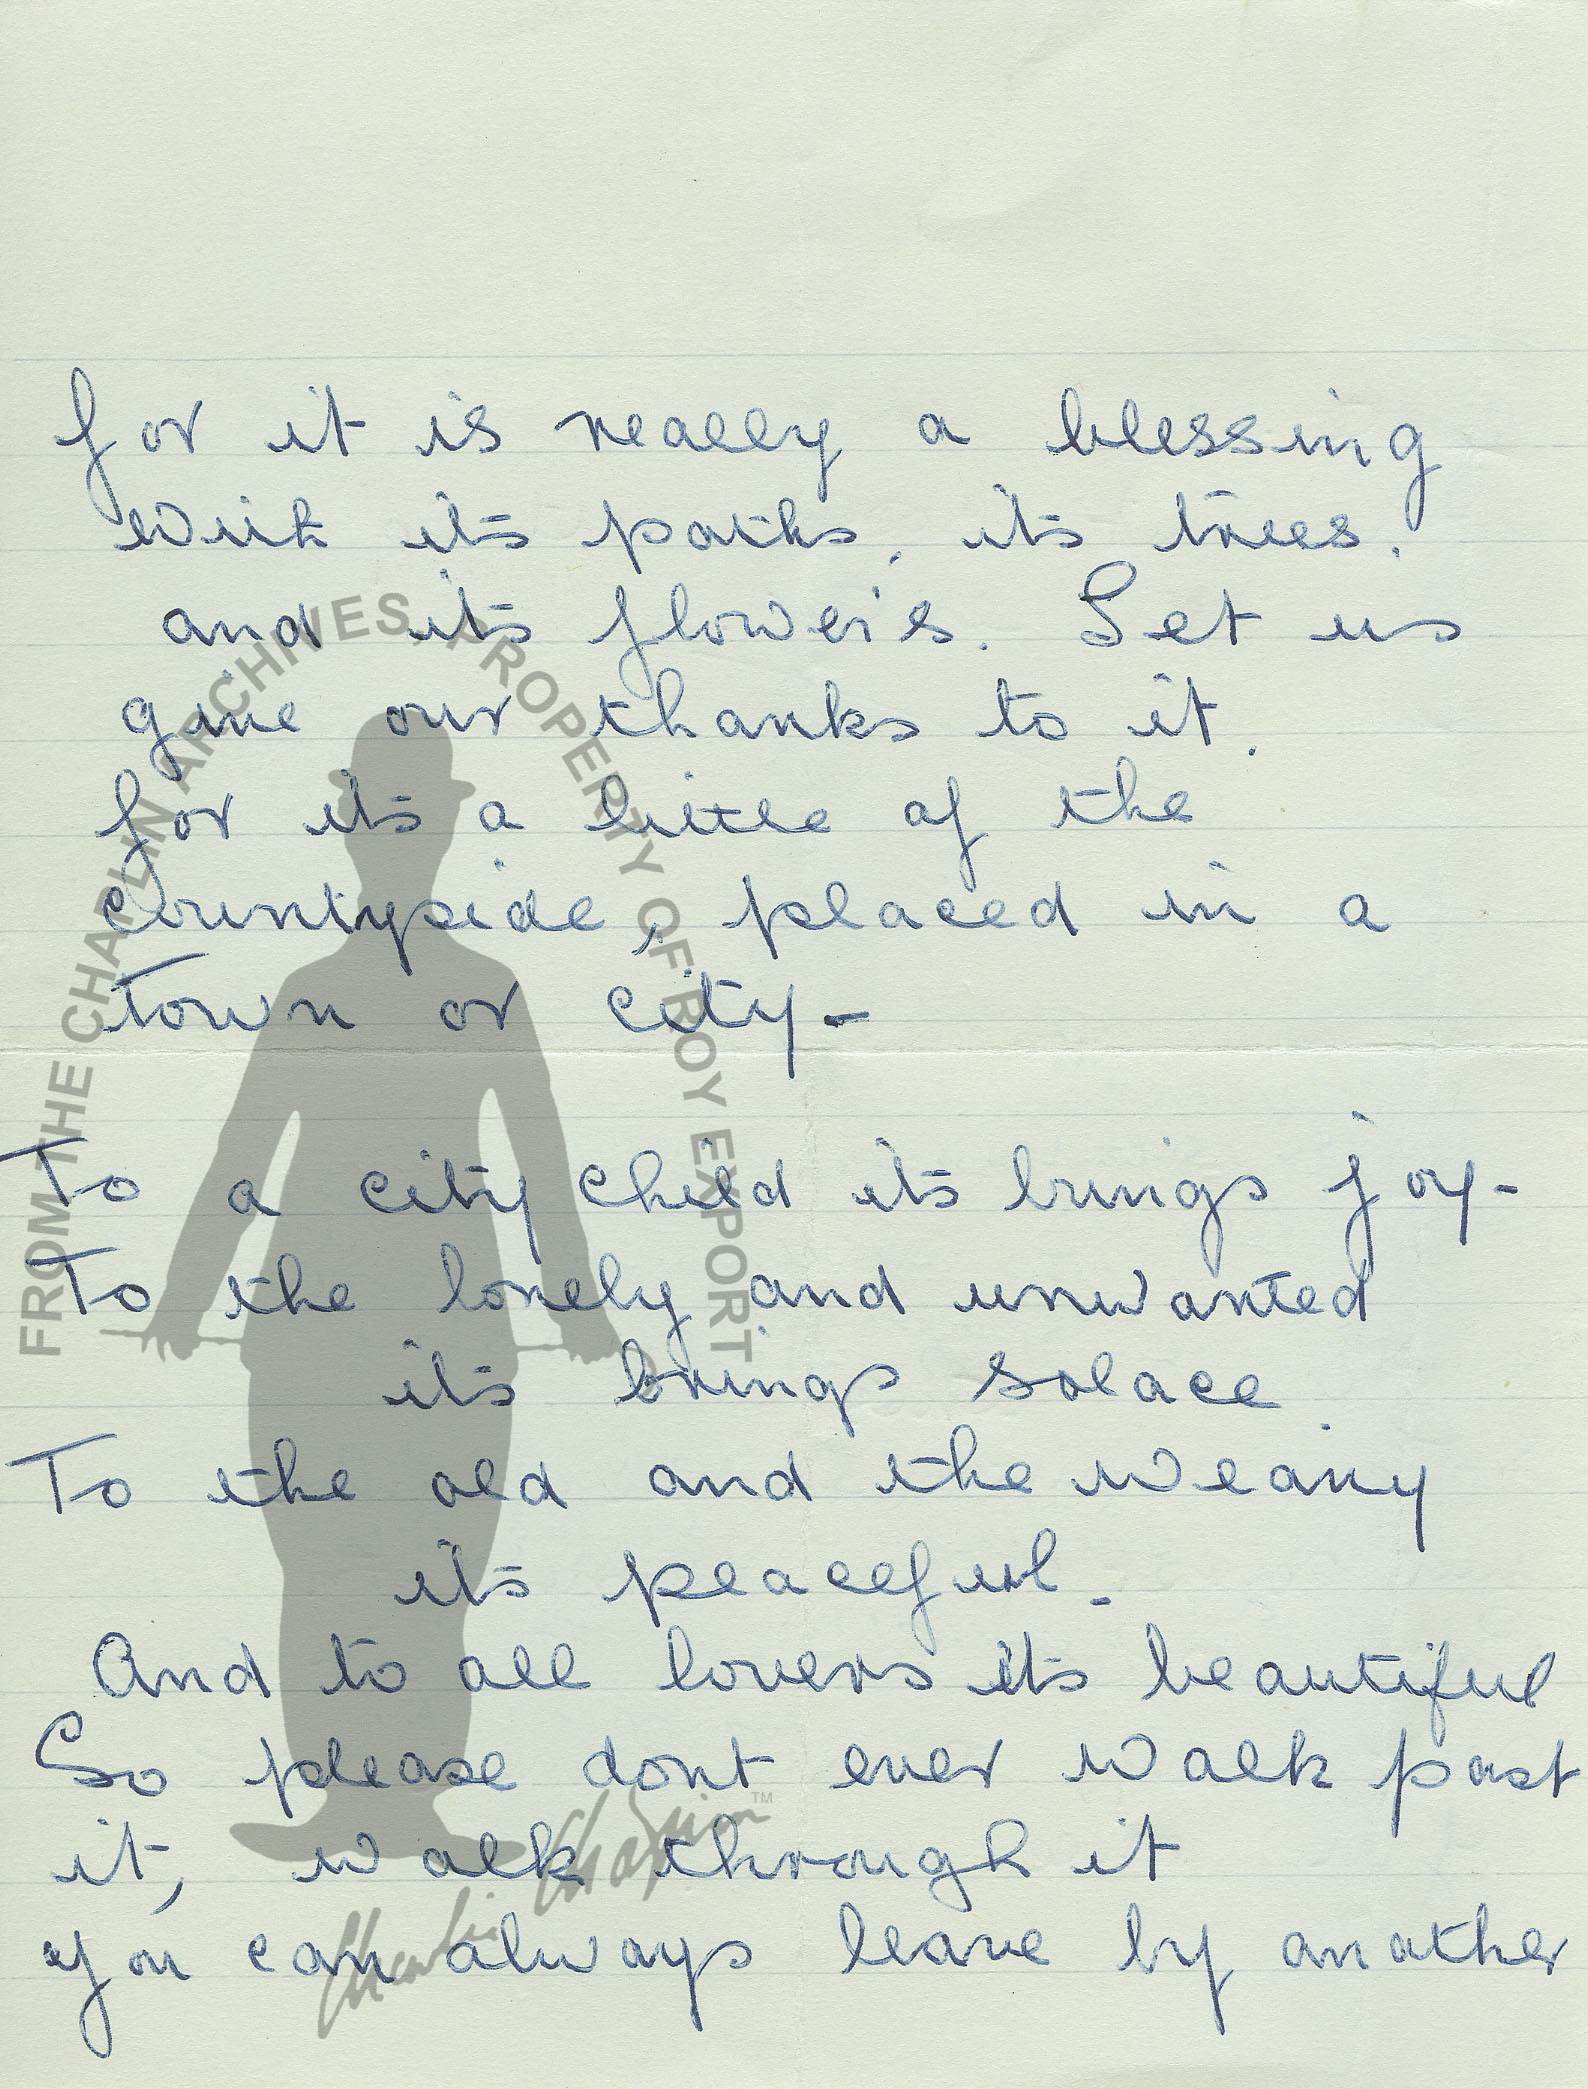 for it is really a blessing
with its paths, its trees.
and its flowers. Let us
give our thanks to it.
for its a little of the
Countyside, placed in a
Town or city-
To a city child its brings joy-
To the lonely and unwanted
its brings solace.
To the old and the weary
its peaceful.
And to all lovers its beautiful
So please dont ever walk past
it, walk through it
you can always leave by another
FROM THE CHAPLIN ARCHIVES, PROPERTY OF ROY EXPORT
Charlie Chaplin™